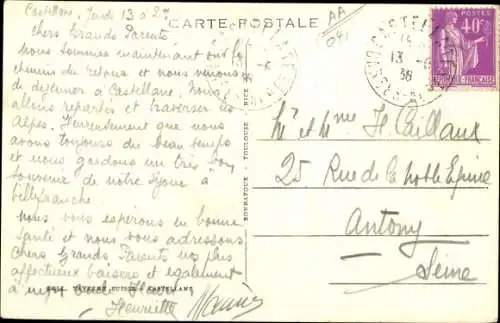 Castellane, Jeudi 13 à 2h
Chers Grands Parents
Nous sommes maintenant sur le
chemin du retour et nous venons
de déjeuner à Castellane. Nous
allons repartir et traverser les
Alpes. Heureusement que nous
avons toujours du beau temps
et nous gardons un très bon
souvenir de notre séjour à
Villefranche
Nous vous espérons en bonne
santé et nous vous adressons
Chers Grands Parents nos plus
affectueux baisers et également
à
Henriette
CARTE POSTALE
AA
041
CASTELLANE
13
36
40c
POSTES
FRANÇAISE
Mr et Mme H. Caillaux
25 Rue de la Noble Epine
Antony
Seine
TOULOUSE - NICE
TAVERNE SUISSE - CASTELLANE